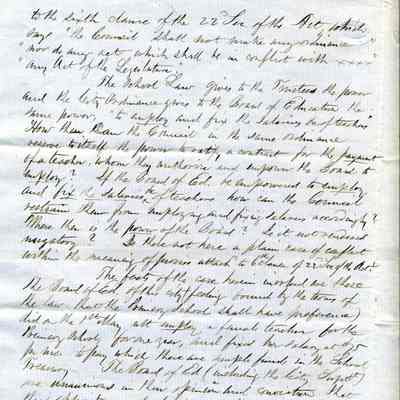 to the sixth clause of the 22d Sec of the Act, which
says "the Council shall not make any ordinance
"nor do any act which shall be in conflict with
"any Act of the Legislature".
The School Law gives to the Trustees the power
and the City Ordinance gives to the Board of Education the
same power, "to employ and fix the salaries of teachers"
How then can the Council in the same ordinance
reserve to itself the power to ratify a contract for the payment
of a teacher, whom they authorize and empower the Board to
employ? If the Board of Ed. be empowered to employ
and fix the salaries of teachers how can the Council
restrain them from employing and fixing salaries accordingly?
Where then is the power of the Board? Is it not rendered
nugatory? Is there not here a plain case of conflict
within the meaning of 6th clause of 22 Sec of the Act
The facts of the case herein involved are these
The Board of Ed. of the city feeling bound by the terms of
the law that the Primary School shall have preference
did on the 1st May ult employ a female teacher for the
Primary School for one year, and fixed her salary at
to pay which there are ample funds in the School
Treasury. The Board of Ed (including the City Supt)
are unanimous in their opinion and that